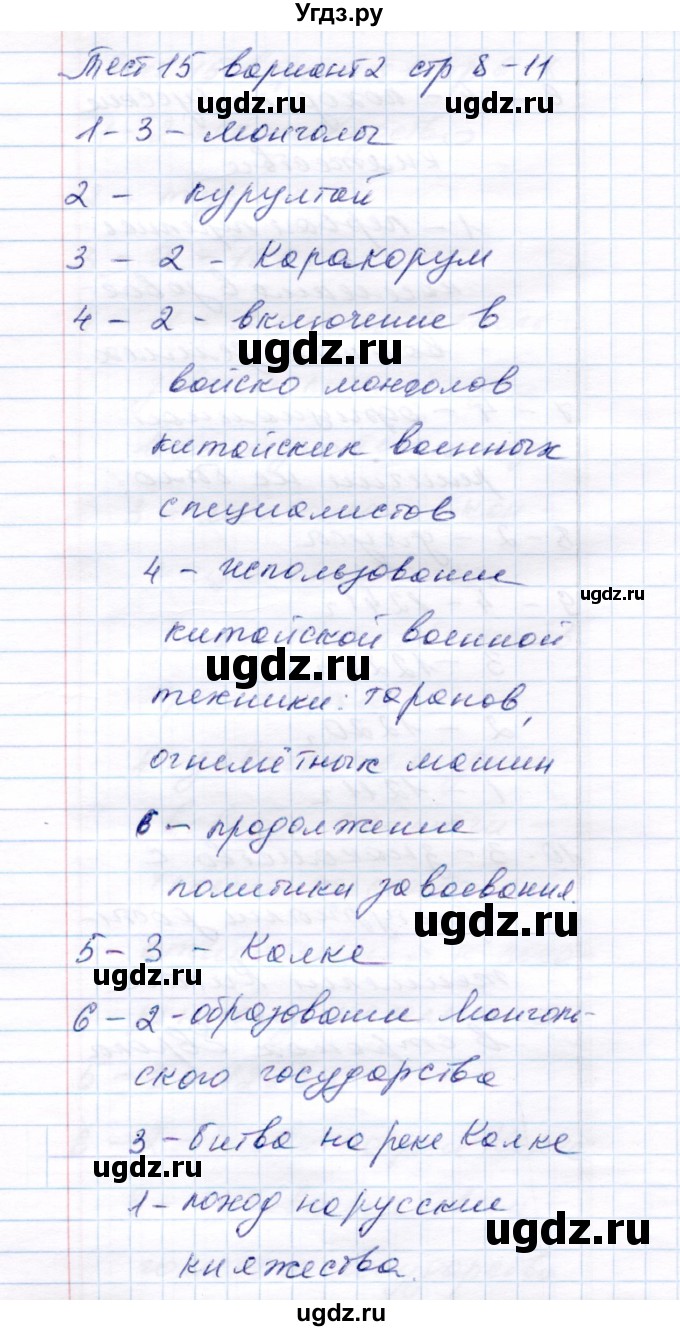 Угдз.ру
Тест 15 вариант 2 стр 8-11
ugdz.ru
1 - 3 - монголы
2 - курултай
ugdz.ru
3 - 2 - Каракорум
4 - 2 - включение в
ugdz.ru
войско монголов
китайских военных
специалистов
4 - использование
ugdz.ru
китайской военной
ugdz.ru
техники: таранов,
огнемётных машин
6 - продолжение
политики завоевания.
ugdz.ru
5 - 3 - Калке
ugdz.ru
6 - 2 - образование Монголь-
ского государства
3 - битва на реке Калке
ugdz.ru
1 - поход на русские
ugdz.ru
княжества.
ugdz.ru